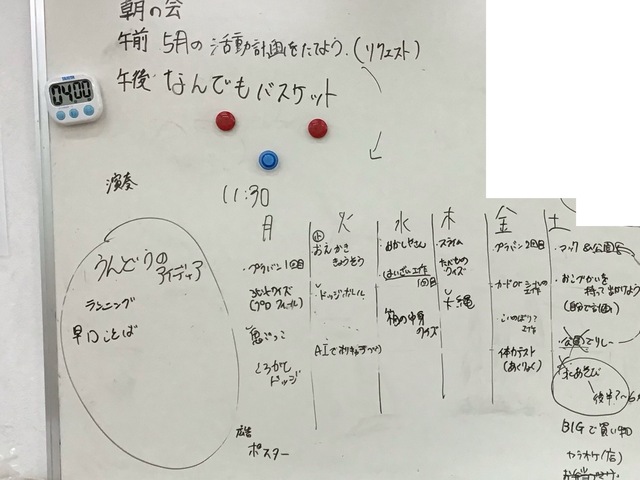 朝の会
午前 5月の活動計画をたてよう.(リクエスト)
午後 なんでもバスケット
04:00
演奏
11:30
うんどうの
アイディア
ランニング
早口ことば
月
・プラバン1回目
クイズ
(プロフィール)
鬼ごっこ
ころがし
ドッジ
広告
ポスター
火
止
おえかき
きょうそう
・ドッジボール
AIで
水
はいざい工作
1回目
箱の中身
クイズ
木
・スライム
たべもの
クイズ
大縄
金
・プラバン2回目
・カード or シール
工作
・こいのぼり?
工作
・体力テスト
(あくりょく)
土
・マック&公園
・おこづかいを
持って出かけよう
(自分で計画)
水あそび
後半?~6月
BIGで買い物
カラオケ(店)